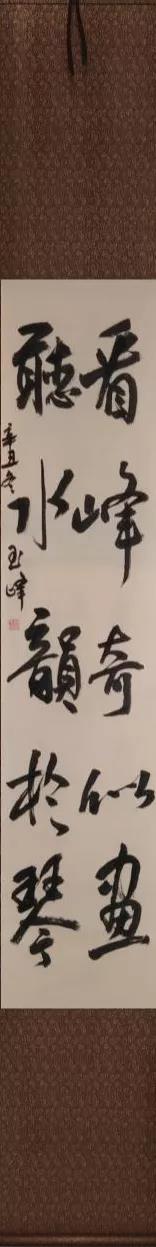 看峰奇似畫
聽水韻於琴
辛丑冬 玉峰